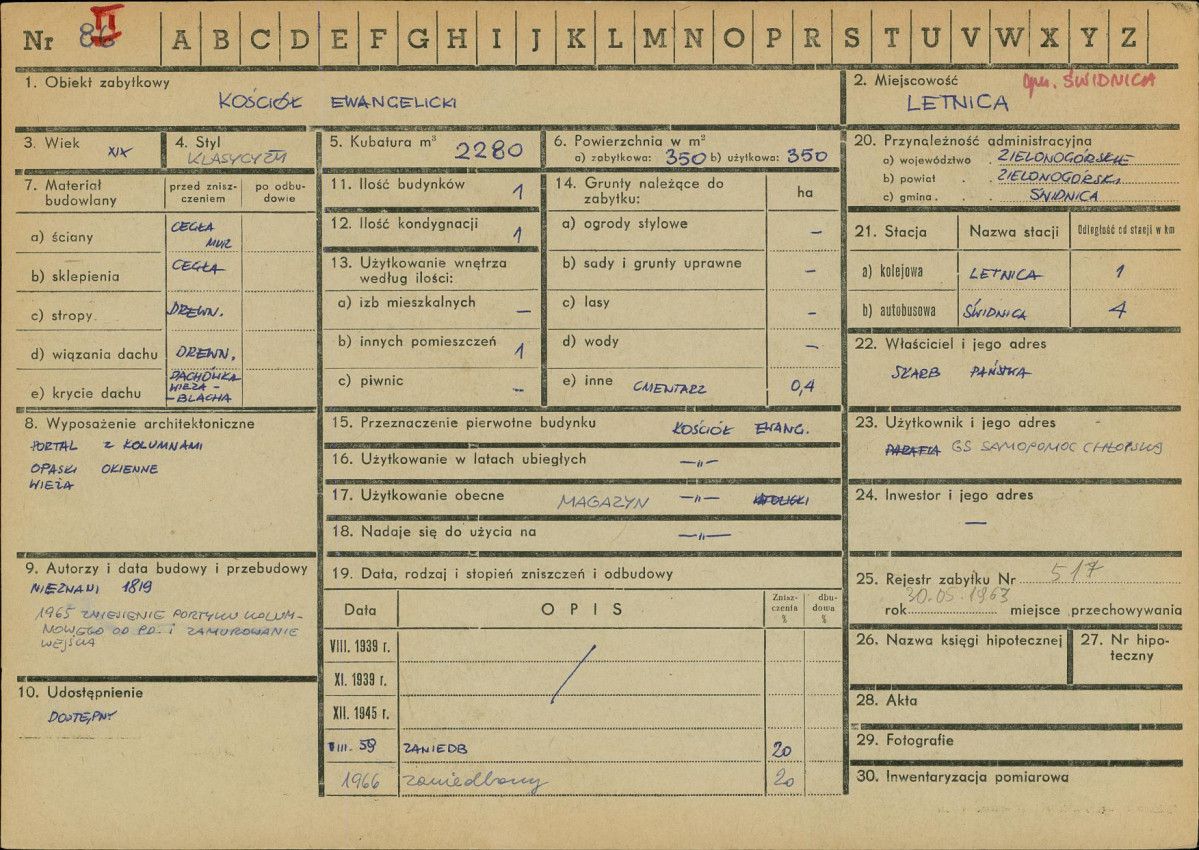 Nr 86 II A B C D E F G H I J K L M N O P R S T U V W X Y Z
1. Obiekt zabytkowy
KOŚCIÓŁ EWANGELICKI
2. Miejscowość gm. ŚWIDNICA
LETNICA
3. Wiek
XIX
4. Styl
KLASYCYZM
5. Kubatura m³
2280
6. Powierzchnia w m²
a) zabytkowa: 350 b) użytkowa: 350
7. Materiał budowlany
przed zniszczeniem
po odbudowie
a) ściany CEGŁA MUR
b) sklepienia CEGŁA
c) stropy. DREWN.
d) wiązania dachu DREWN.
e) krycie dachu DACHÓWKA
WIEŻA -
- BLACHA
8. Wyposażenie architektoniczne
PORTAL Z KOLUMNAMI
OPASKI OKIENNE
WIEŻA
9. Autorzy i data budowy i przebudowy
NIEZNANI 1819
1965 ZNIESIENIE PORTYKU KOLUM-
NOWEGO OD PD. I ZAMUROWANIE
WEJŚCIA
10. Udostępnienie
DOSTĘPNY
11. Ilość budynków 1
12. Ilość kondygnacji 1
13. Użytkowanie wnętrza
według ilości:
a) izb mieszkalnych —
b) innych pomieszczeń 1
c) piwnic —
14. Grunty należące do
zabytku:
ha
a) ogrody stylowe —
b) sady i grunty uprawne —
c) lasy —
d) wody —
e) inne CMENTARZ 0,4
15. Przeznaczenie pierwotne budynku KOŚCIÓŁ EWANG.
16. Użytkowanie w latach ubiegłych —"—
17. Użytkowanie obecne MAGAZYN —"— KATOLICKI
18. Nadaje się do użycia na —"—
19. Data, rodzaj i stopień zniszczeń i odbudowy
Data
OPIS
Zniszczenia %
dbudowa %
VIII. 1939 r.
XI. 1939 r.
XII. 1945 r.
VIII. 59 ZANIEDB 20
1966 zaniedbany 20
20. Przynależność administracyjna
a) województwo ZIELONOGÓRSKIE
b) powiat ZIELONOGÓRSKI
c) gmina ŚWIDNICA
21. Stacja Nazwa stacji Odległość od stacji w km
a) kolejowa LETNICA 1
b) autobusowa ŚWIDNICA 4
22. Właściciel i jego adres
SKARB PAŃSTWA
23. Użytkownik i jego adres
PARAFIA GS SAMOPOMOC CHŁOPSKA
24. Inwestor i jego adres
—
25. Rejestr zabytku Nr 517
30.05.1963
rok miejsce przechowywania
26. Nazwa księgi hipotecznej
27. Nr hipo-
teczny
28. Akta
29. Fotografie
30. Inwentaryzacja pomiarowa